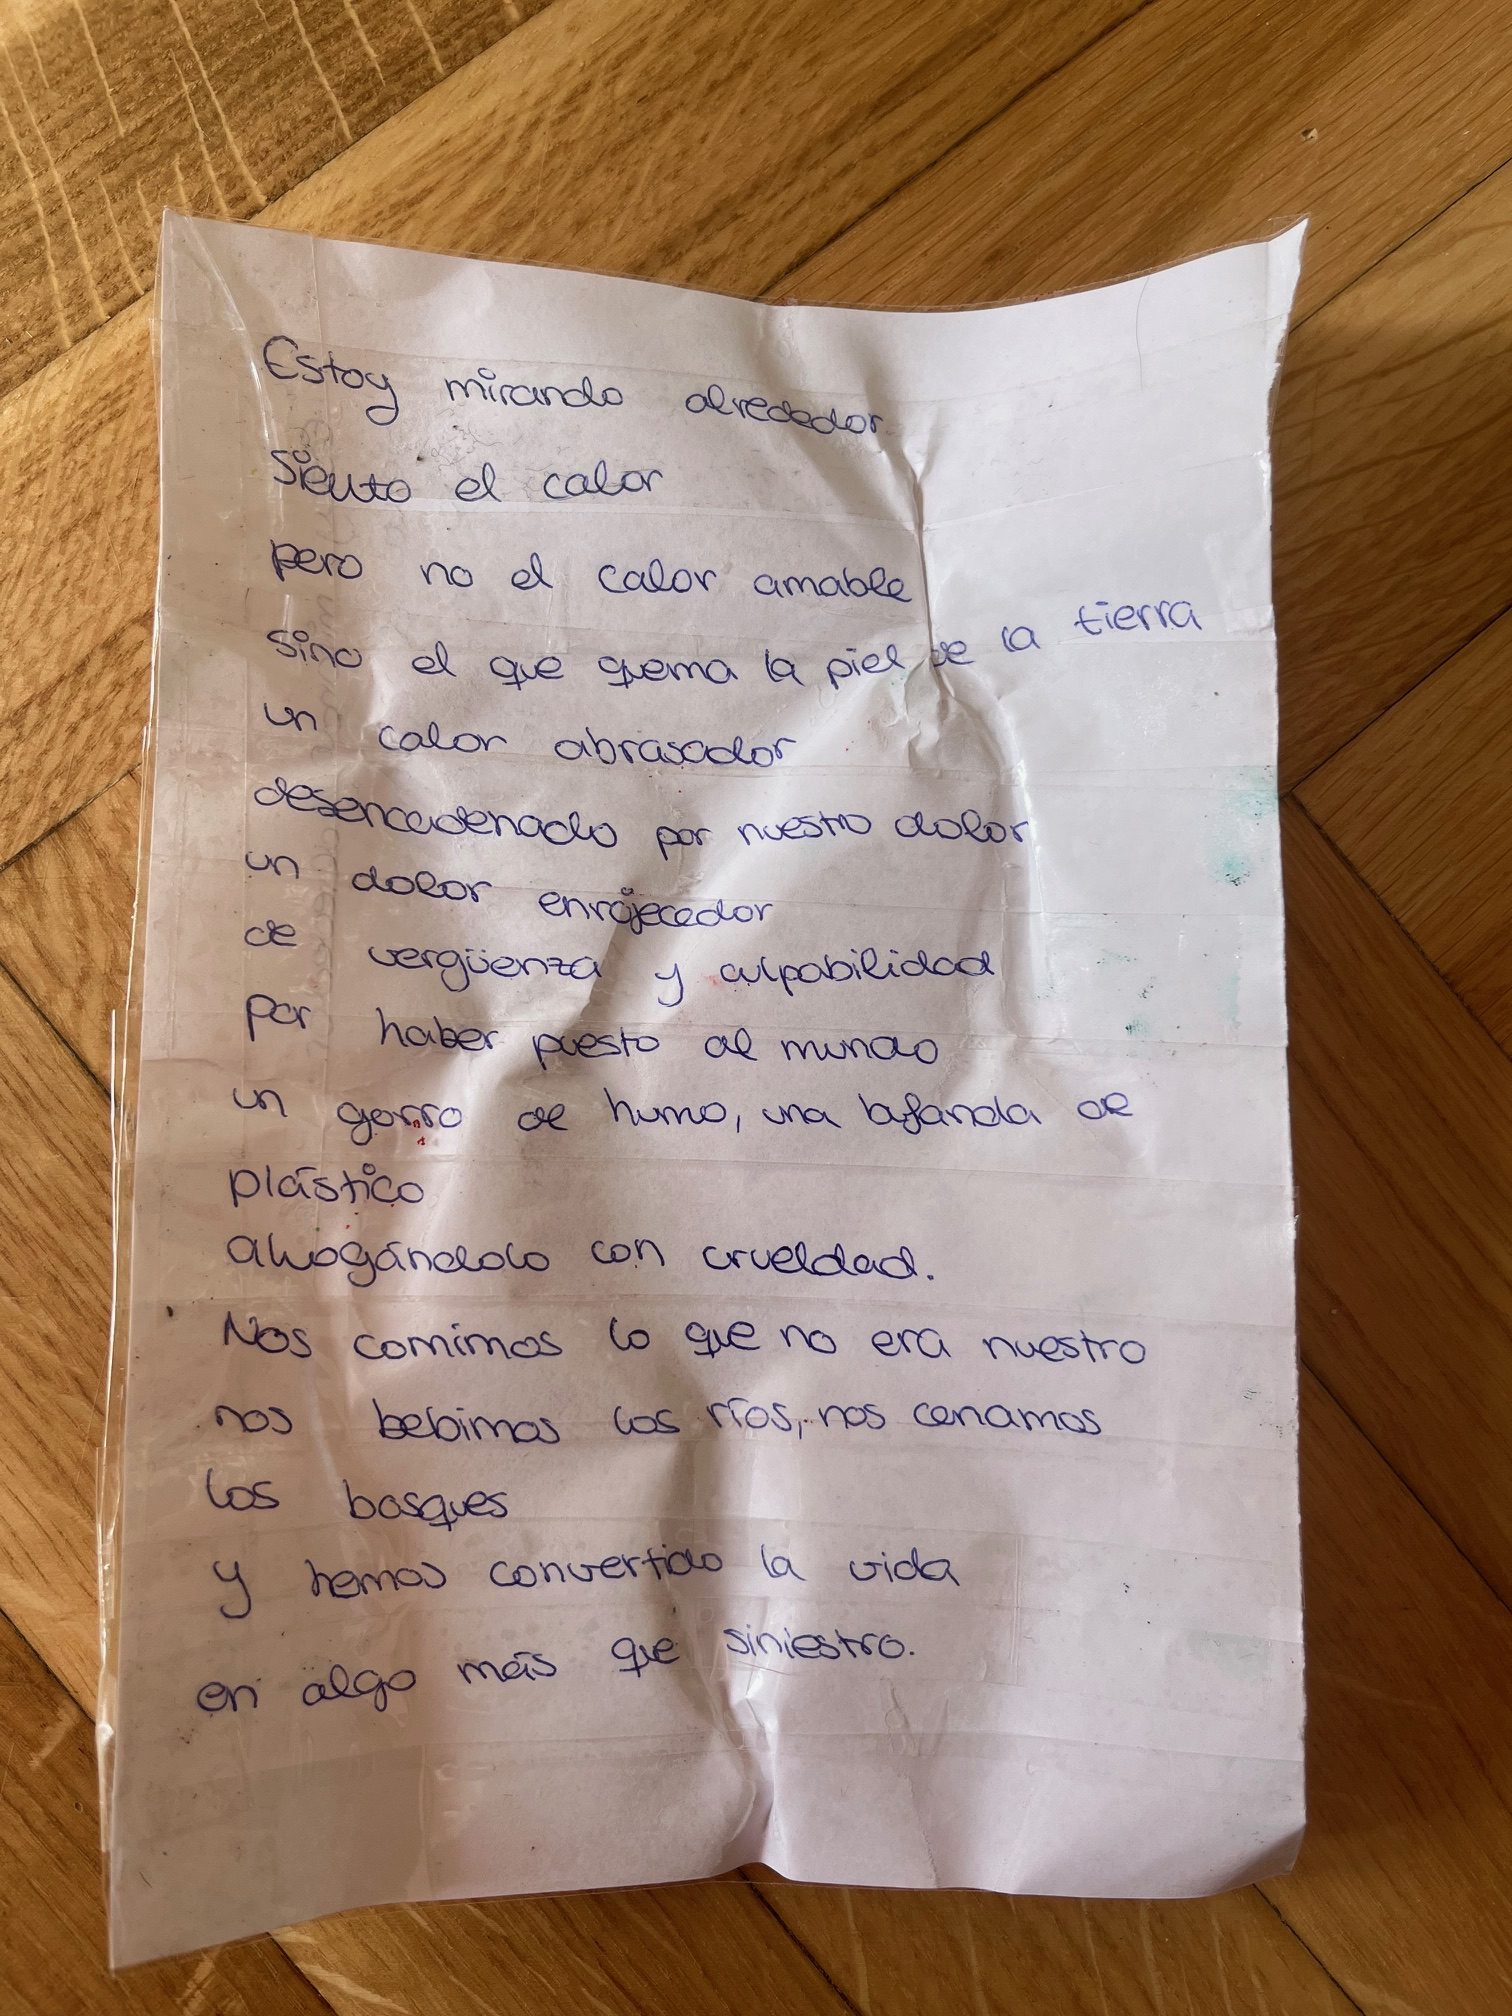 Estoy mirando alrededor
Siento el calor
pero no el calor amable
sino el que quema la piel de la tierra
un calor abrasador
desencadenado por nuestro dolor
un dolor enrojecedor
de vergüenza y culpabilidad
por haber puesto al mundo
un gorro de humo, una bufanda de
plástico
ahogándolo con crueldad.
Nos comimos lo que no era nuestro
nos bebimos los ríos, nos cenamos
los bosques
y hemos convertido la vida
en algo más que siniestro.